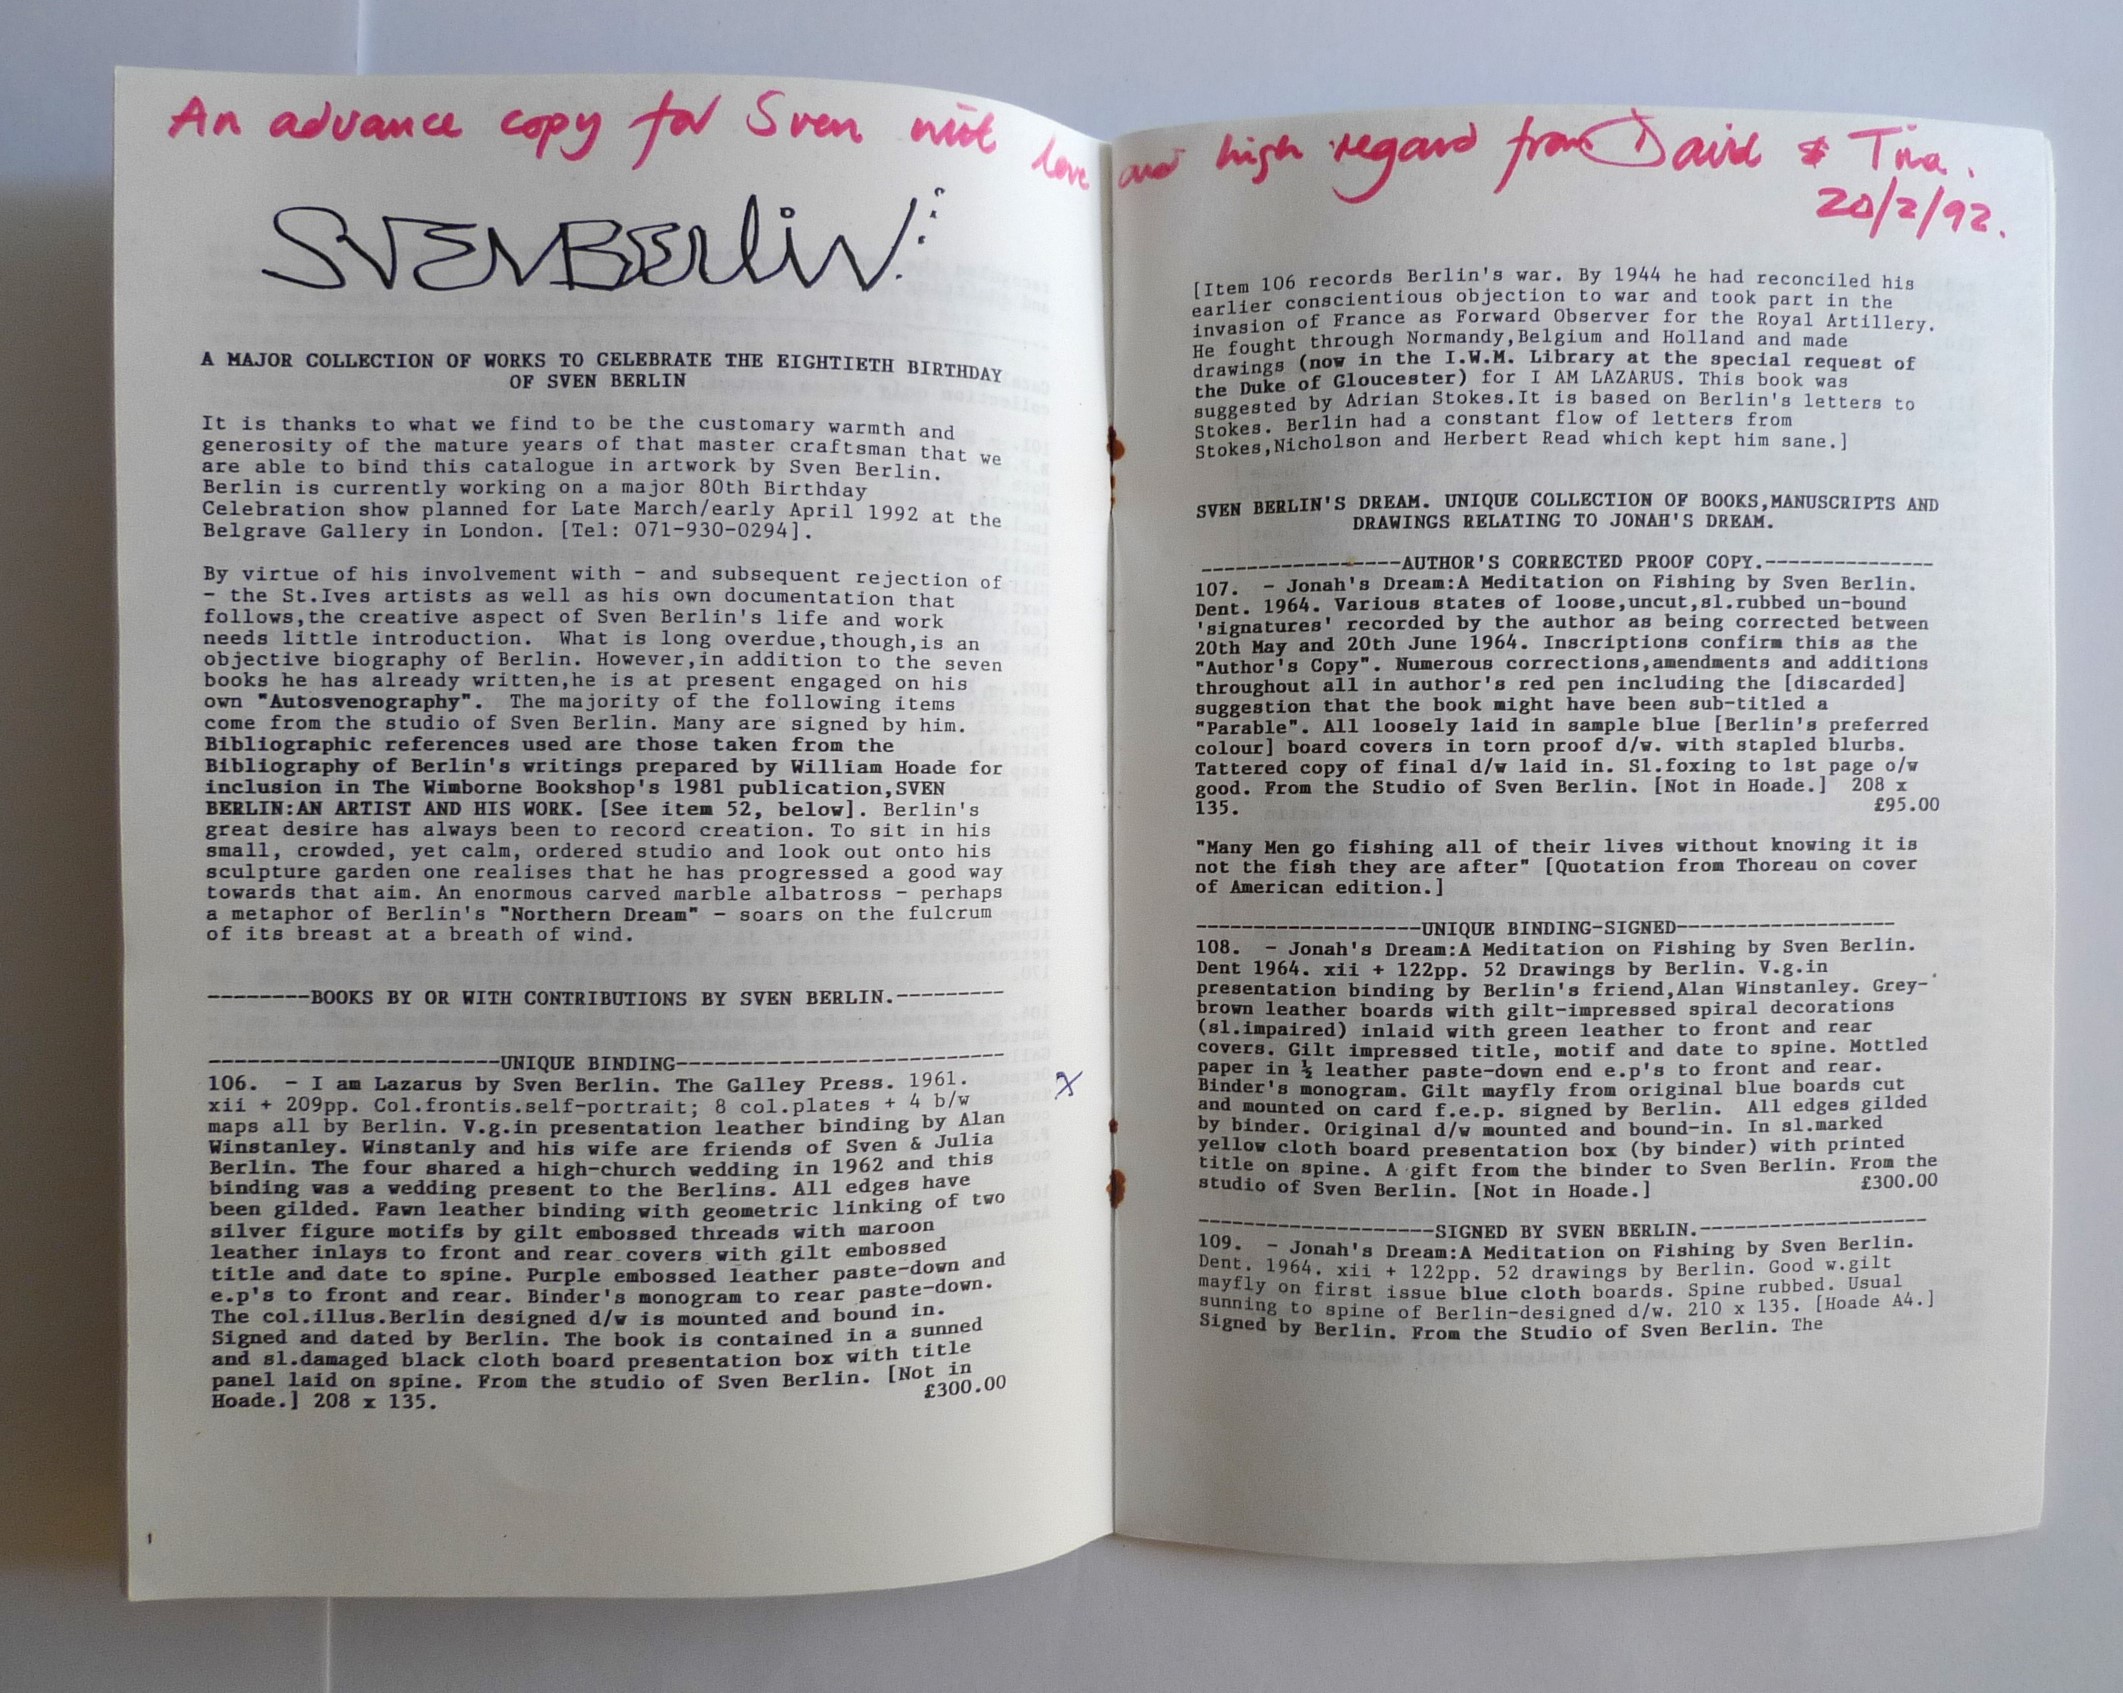 An advance copy for Sven with love and high regard from David & Tina.
20/2/92.
SVENBErliN:
A MAJOR COLLECTION OF WORKS TO CELEBRATE THE EIGHTIETH BIRTHDAY
OF SVEN BERLIN
It is thanks to what we find to be the customary warmth and
generosity of the mature years of that master craftsman that we
are able to bind this catalogue in artwork by Sven Berlin.
Berlin is currently working on a major 80th Birthday
Celebration show planned for Late March/early April 1992 at the
Belgrave Gallery in London. [Tel: 071-930-0294].
By virtue of his involvement with - and subsequent rejection of
- the St.Ives artists as well as his own documentation that
follows,the creative aspect of Sven Berlin's life and work
needs little introduction. What is long overdue,though,is an
objective biography of Berlin. However,in addition to the seven
books he has already written,he is at present engaged on his
own "Autosvenography". The majority of the following items
come from the studio of Sven Berlin. Many are signed by him.
Bibliographic references used are those taken from the
Bibliography of Berlin's writings prepared by William Hoade for
inclusion in The Wimborne Bookshop's 1981 publication,SVEN
BERLIN:AN ARTIST AND HIS WORK. [See item 52, below]. Berlin's
great desire has always been to record creation. To sit in his
small, crowded, yet calm, ordered studio and look out onto his
sculpture garden one realises that he has progressed a good way
towards that aim. An enormous carved marble albatross - perhaps
a metaphor of Berlin's "Northern Dream" - soars on the fulcrum
of its breast at a breath of wind.
--------BOOKS BY OR WITH CONTRIBUTIONS BY SVEN BERLIN.---------
-----------------------UNIQUE BINDING--------------------------
106. - I am Lazarus by Sven Berlin. The Galley Press. 1961.
xii + 209pp. Col.frontis.self-portrait; 8 col.plates + 4 b/w
maps all by Berlin. V.g.in presentation leather binding by Alan
Winstanley. Winstanly and his wife are friends of Sven & Julia
Berlin. The four shared a high-church wedding in 1962 and this
binding was a wedding present to the Berlins. All edges have
been gilded. Fawn leather binding with geometric linking of two
silver figure motifs by gilt embossed threads with maroon
leather inlays to front and rear covers with gilt embossed
title and date to spine. Purple embossed leather paste-down and
e.p's to front and rear. Binder's monogram to rear paste-down.
The col.illus.Berlin designed d/w is mounted and bound in.
Signed and dated by Berlin. The book is contained in a sunned
and sl.damaged black cloth board presentation box with title
panel laid on spine. From the studio of Sven Berlin. [Not in
Hoade.] 208 x 135. £300.00
x
1
[Item 106 records Berlin's war. By 1944 he had reconciled his
earlier conscientious objection to war and took part in the
invasion of France as Forward Observer for the Royal Artillery.
He fought through Normandy,Belgium and Holland and made
drawings (now in the I.W.M. Library at the special request of
the Duke of Gloucester) for I AM LAZARUS. This book was
suggested by Adrian Stokes.It is based on Berlin's letters to
Stokes. Berlin had a constant flow of letters from
Stokes,Nicholson and Herbert Read which kept him sane.]
SVEN BERLIN'S DREAM. UNIQUE COLLECTION OF BOOKS,MANUSCRIPTS AND
DRAWINGS RELATING TO JONAH'S DREAM.
-----------------AUTHOR'S CORRECTED PROOF COPY.---------------
107. - Jonah's Dream:A Meditation on Fishing by Sven Berlin.
Dent. 1964. Various states of loose,uncut,sl.rubbed un-bound
'signatures' recorded by the author as being corrected between
20th May and 20th June 1964. Inscriptions confirm this as the
"Author's Copy". Numerous corrections,amendments and additions
throughout all in author's red pen including the [discarded]
suggestion that the book might have been sub-titled a
"Parable". All loosely laid in sample blue [Berlin's preferred
colour] board covers in torn proof d/w. with stapled blurbs.
Tattered copy of final d/w laid in. Sl.foxing to 1st page o/w
good. From the Studio of Sven Berlin. [Not in Hoade.] 208 x
135. £95.00
"Many Men go fishing all of their lives without knowing it is
not the fish they are after" [Quotation from Thoreau on cover
of American edition.]
-------------------UNIQUE BINDING-SIGNED-------------------
108. - Jonah's Dream:A Meditation on Fishing by Sven Berlin.
Dent 1964. xii + 122pp. 52 Drawings by Berlin. V.g.in
presentation binding by Berlin's friend,Alan Winstanley. Grey-
brown leather boards with gilt-impressed spiral decorations
(sl.impaired) inlaid with green leather to front and rear
covers. Gilt impressed title, motif and date to spine. Mottled
paper in ½ leather paste-down end e.p's to front and rear.
Binder's monogram. Gilt mayfly from original blue boards cut
and mounted on card f.e.p. signed by Berlin. All edges gilded
by binder. Original d/w mounted and bound-in. In sl.marked
yellow cloth board presentation box (by binder) with printed
title on spine. A gift from the binder to Sven Berlin. From the
studio of Sven Berlin. [Not in Hoade.] £300.00
--------------------SIGNED BY SVEN BERLIN.-------------------
109. - Jonah's Dream:A Meditation on Fishing by Sven Berlin.
Dent. 1964. xii + 122pp. 52 drawings by Berlin. Good w.gilt
mayfly on first issue blue cloth boards. Spine rubbed. Usual
sunning to spine of Berlin-designed d/w. 210 x 135. [Hoade A4.]
Signed by Berlin. From the Studio of Sven Berlin. The